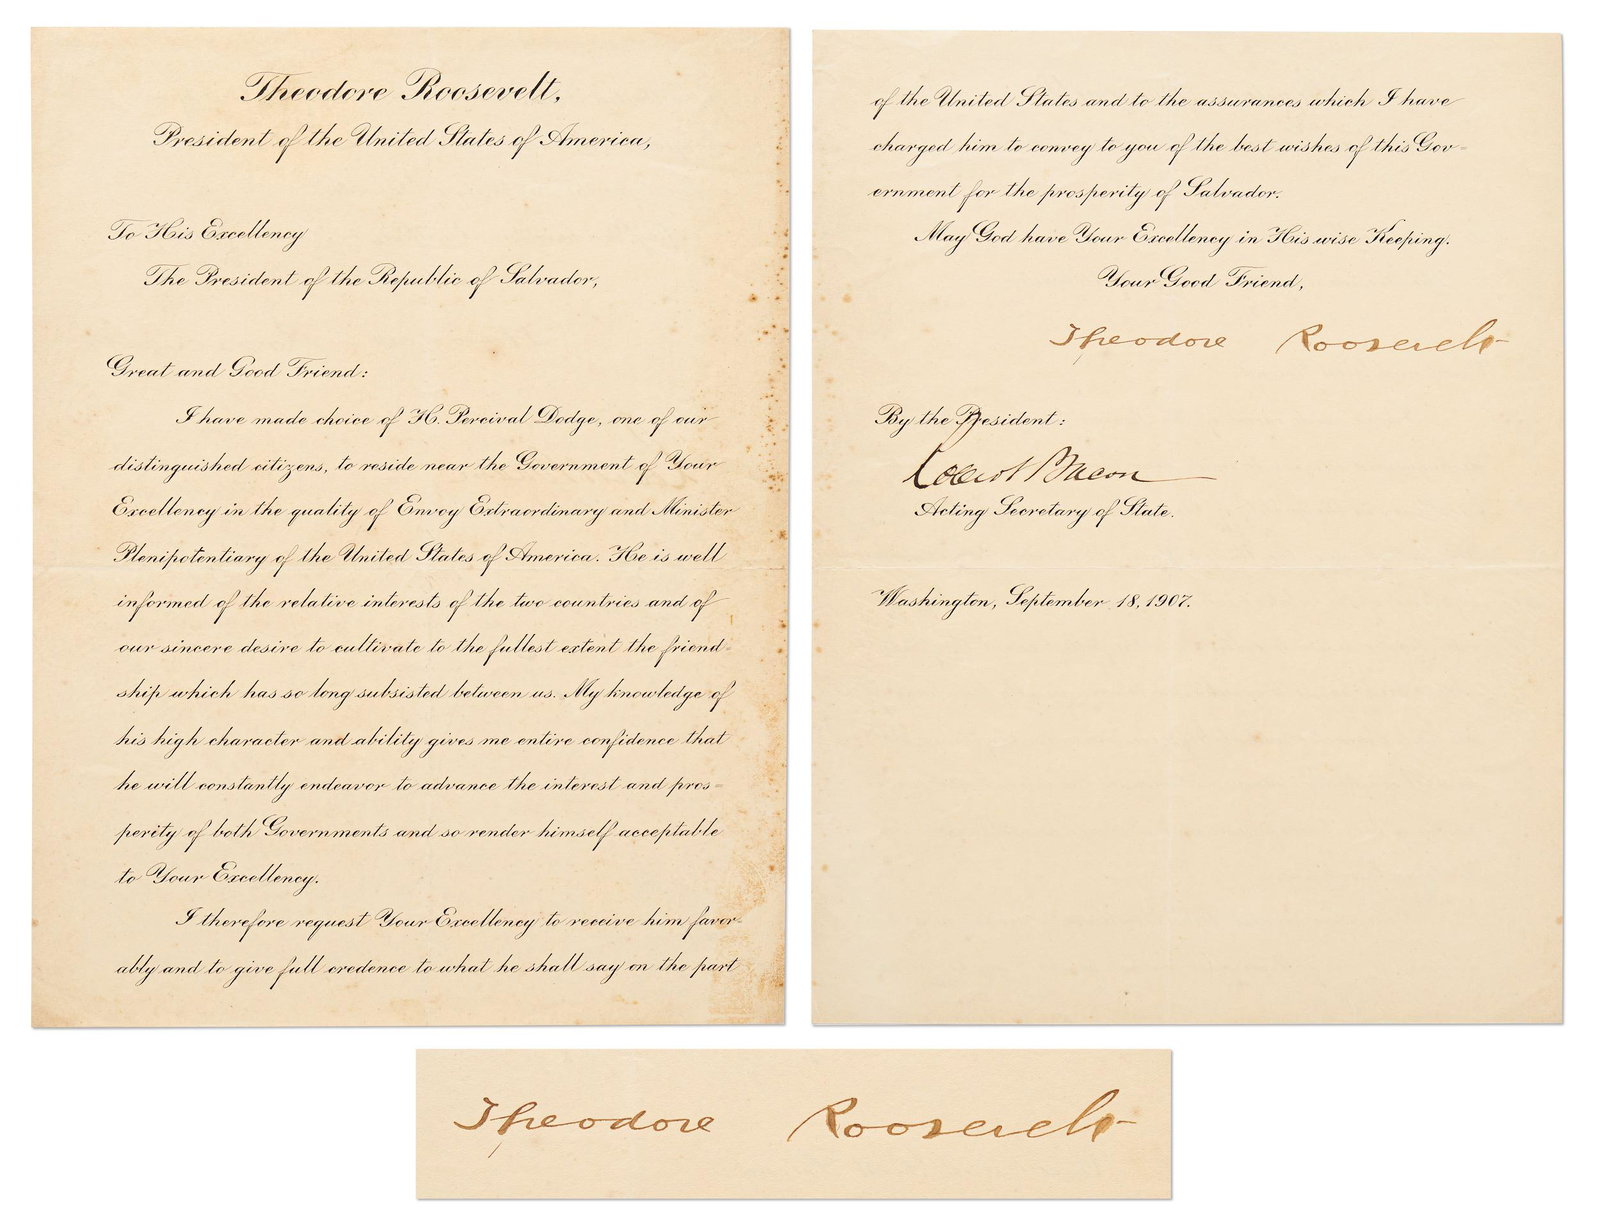 Theodore Roosevelt,
President of the United States of America,
To His Excellency
The President of the Republic of Salvador,
Great and Good Friend:
I have made choice of H. Percival Dodge, one of our
distinguished citizens, to reside near the Government of Your
Excellency in the quality of Envoy Extraordinary and Minister
Plenipotentiary of the United States of America. He is well
informed of the relative interests of the two countries and of
our sincere desire to cultivate to the fullest extent the friend-
ship which has so long subsisted between us. My knowledge of
his high character and ability gives me entire confidence that
he will constantly endeavor to advance the interest and pros=
perity of both Governments and so render himself acceptable
to Your Excellency.
I therefore request Your Excellency to receive him favor-
ably and to give full credence to what he shall say on the part
of the United States and to the assurances which I have
charged him to convey to you of the best wishes of this Gov=
ernment for the prosperity of Salvador.
May God have Your Excellency in His wise Keeping.
Your Good Friend,
Theodore Roosevelt
By the President:
Robert Bacon
Acting Secretary of State.
Washington, September 18, 1907.
Theodore Roosevelt